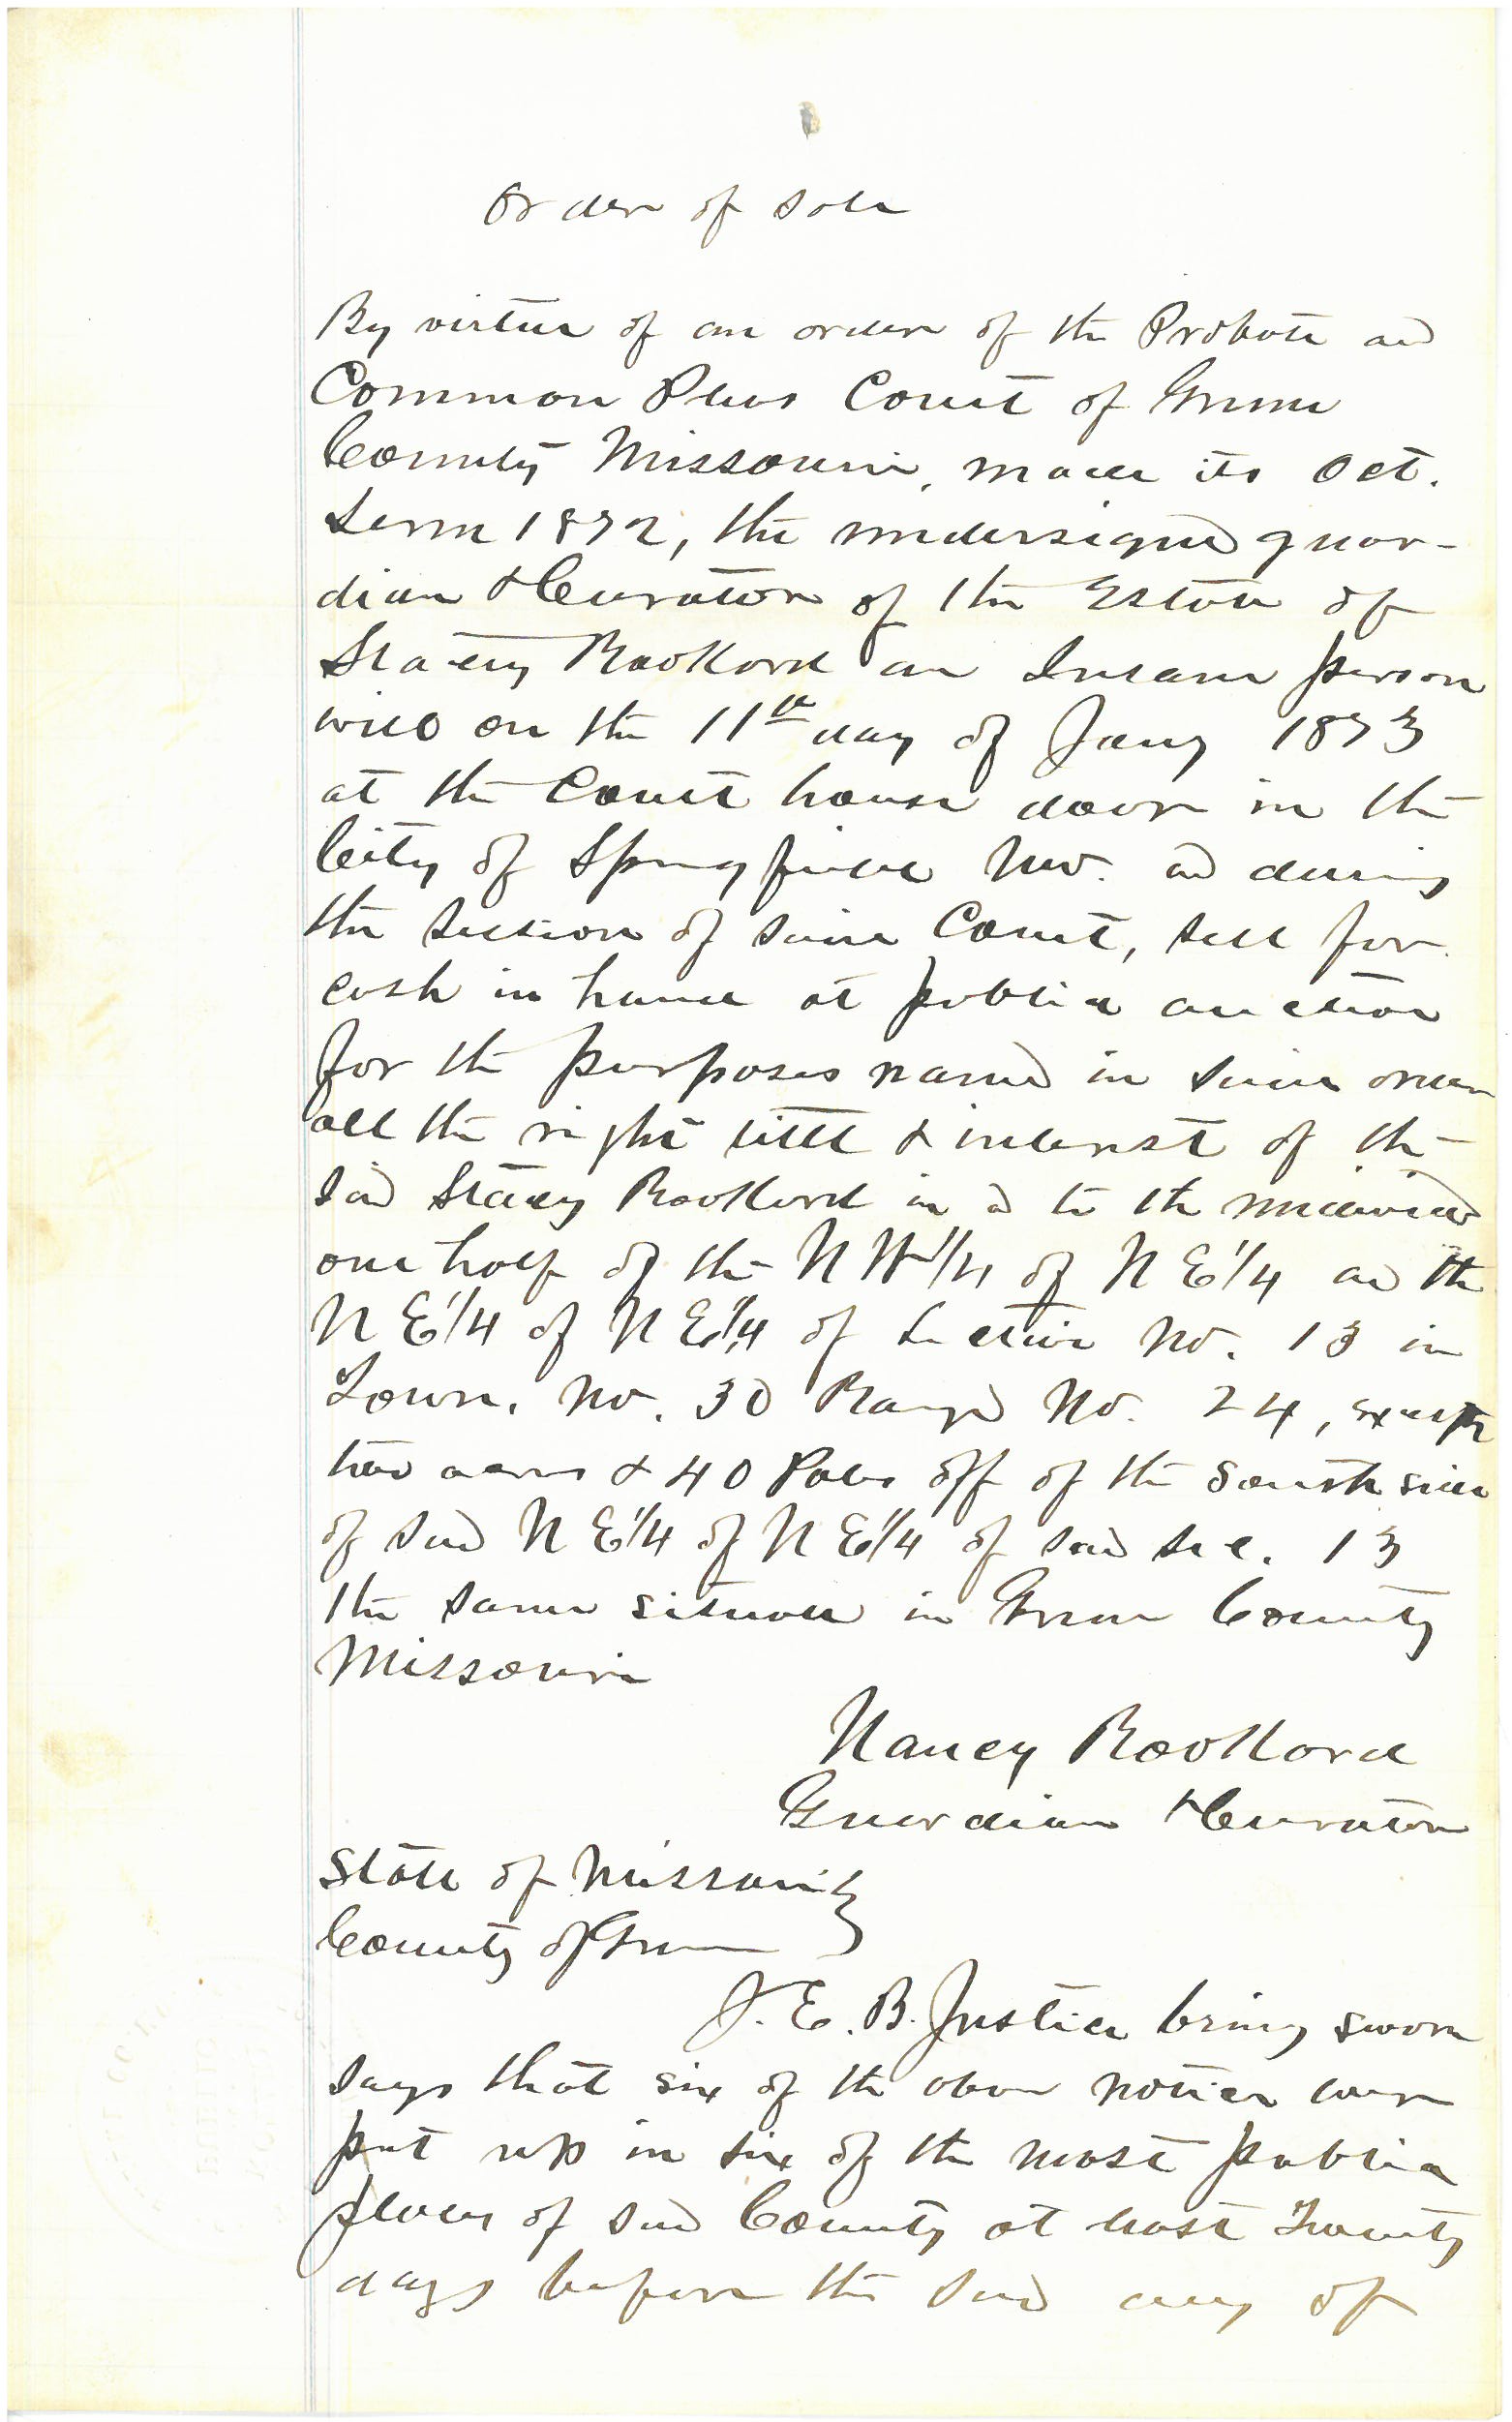 Order of Sale
By virtue of an order of the Probate and
Common Pleas Court of Greene
County Missouri, made its Oct.
Term 1872, the undersigned guar-
dian & Curator of the Estate of
Stacey Rookard an Insane person
will on the 11th day of Jany 1873
at the Court house door in the
City of Springfield Mo. and during
the session of said Court, sell for
cash in hand at public auction
for the purposes named in said order
all the right title & interest of the
said Stacey Rookard in & to the undivided
one half of the N W 1/4 of N E 1/4 and the
N E 1/4 of N E 1/4 of Section No. 13 in
Town. No. 30 Range No. 24, except
two acres & 40 Poles off of the South side
of said N E 1/4 of N E 1/4 of said Sec. 13
the same situated in Greene County
Missouri
Nancy Rookard
Guardian & Curator
State of Missouri }
County of Greene }
J. E. B. Justice being sworn
says that six of the above notices were
put up in six of the most public
places of said County at least Twenty
days before the said day of